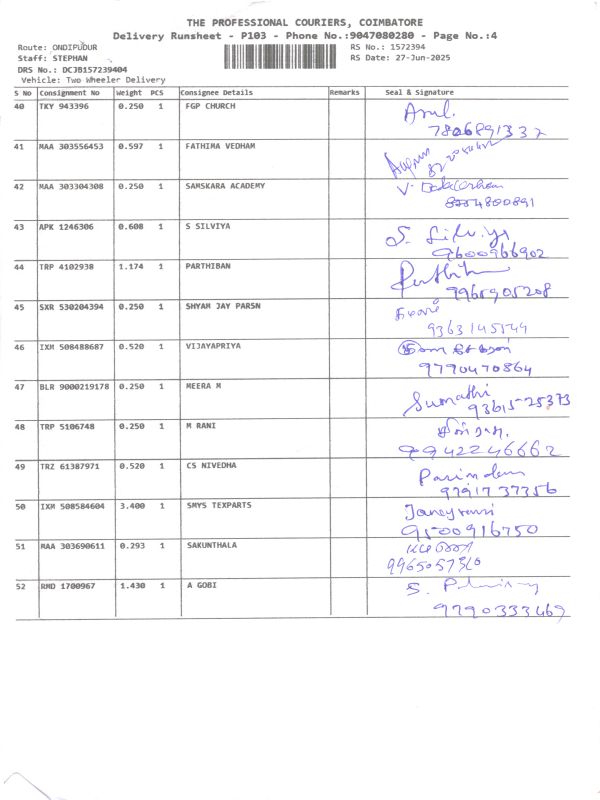 THE PROFESSIONAL COURIERS, COIMBATORE
Delivery Runsheet - P103 - Phone No.:9047080280 - Page No.:4
Route: ONDIPUDUR RS No.: 1572394
Staff: STEPHAN RS Date: 27-Jun-2025
DRS No.: DCJB157239404
Vehicle: Two Wheeler Delivery
S No Consignment No Weight PCS Consignee Details Remarks Seal & Signature
40 TKY 943396 0.250 1 FGP CHURCH Arul.
7806891332
41 MAA 303556453 0.597 1 FATHIMA VEDHAM
42 MAA 303304308 0.250 1 SAMSKARA ACADEMY V.
8754800891
43 APK 1246306 0.608 1 S SILVIYA S. Silviya
9600966902
44 TRP 4102938 1.174 1 PARTHIBAN
9965905208
45 SXR 530204394 0.250 1 SHYAM JAY PARSN
9363145549
46 IXM 508488687 0.520 1 VIJAYAPRIYA
9790470864
47 BLR 9000219178 0.250 1 MEERA M Sumathi
9361525373
48 TRP 5106748 0.250 1 M RANI
9942246662
49 TRZ 61387971 0.520 1 CS NIVEDHA
9791737356
50 IXM 508584604 3.400 1 SMYS TEXPARTS
9500916750
51 MAA 303690611 0.293 1 SAKUNTHALA
9965057360
52 RMD 1700967 1.430 1 A GOBI S.
9790333469